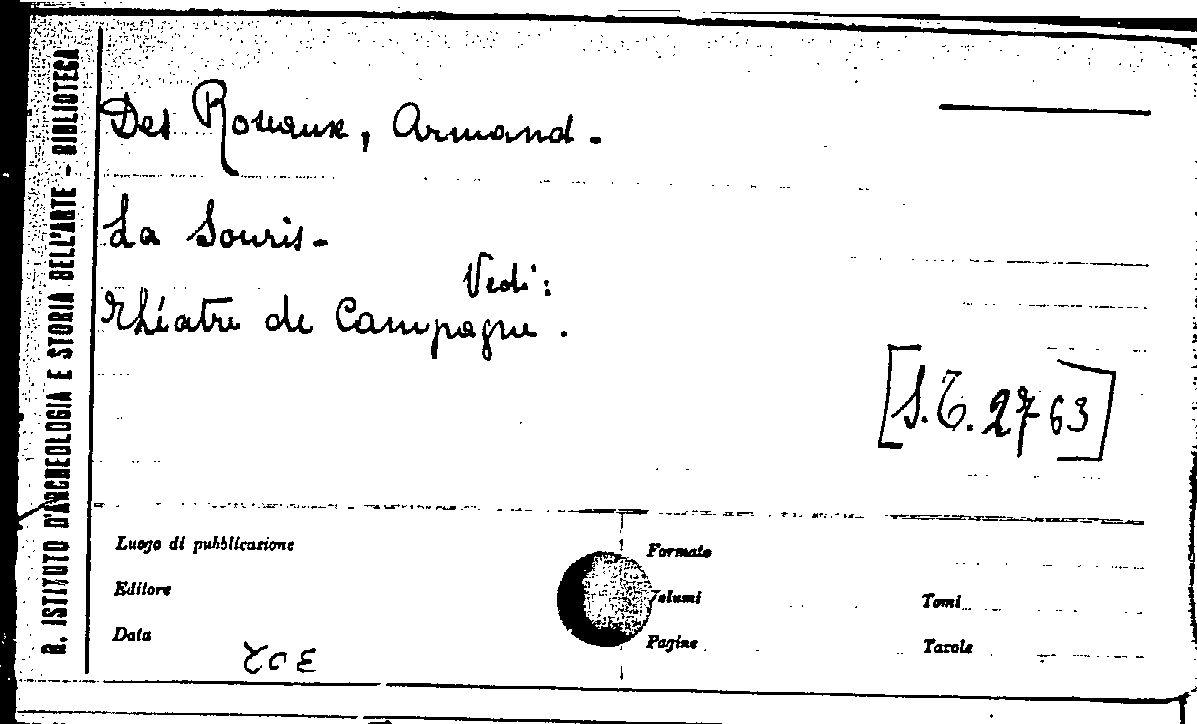 R. ISTITUTO D'ARCHEOLOGIA E STORIA DELL'ARTE - BIBLIOTECA
Des Roseaux, Armand.-
La Souris.-
Vedi:
Théatre de Campagne.
[S.T. 2763]
Luogo di pubblicazione
Editore
Data
Formato
Volumi
Tomi
Pagine
Tavole